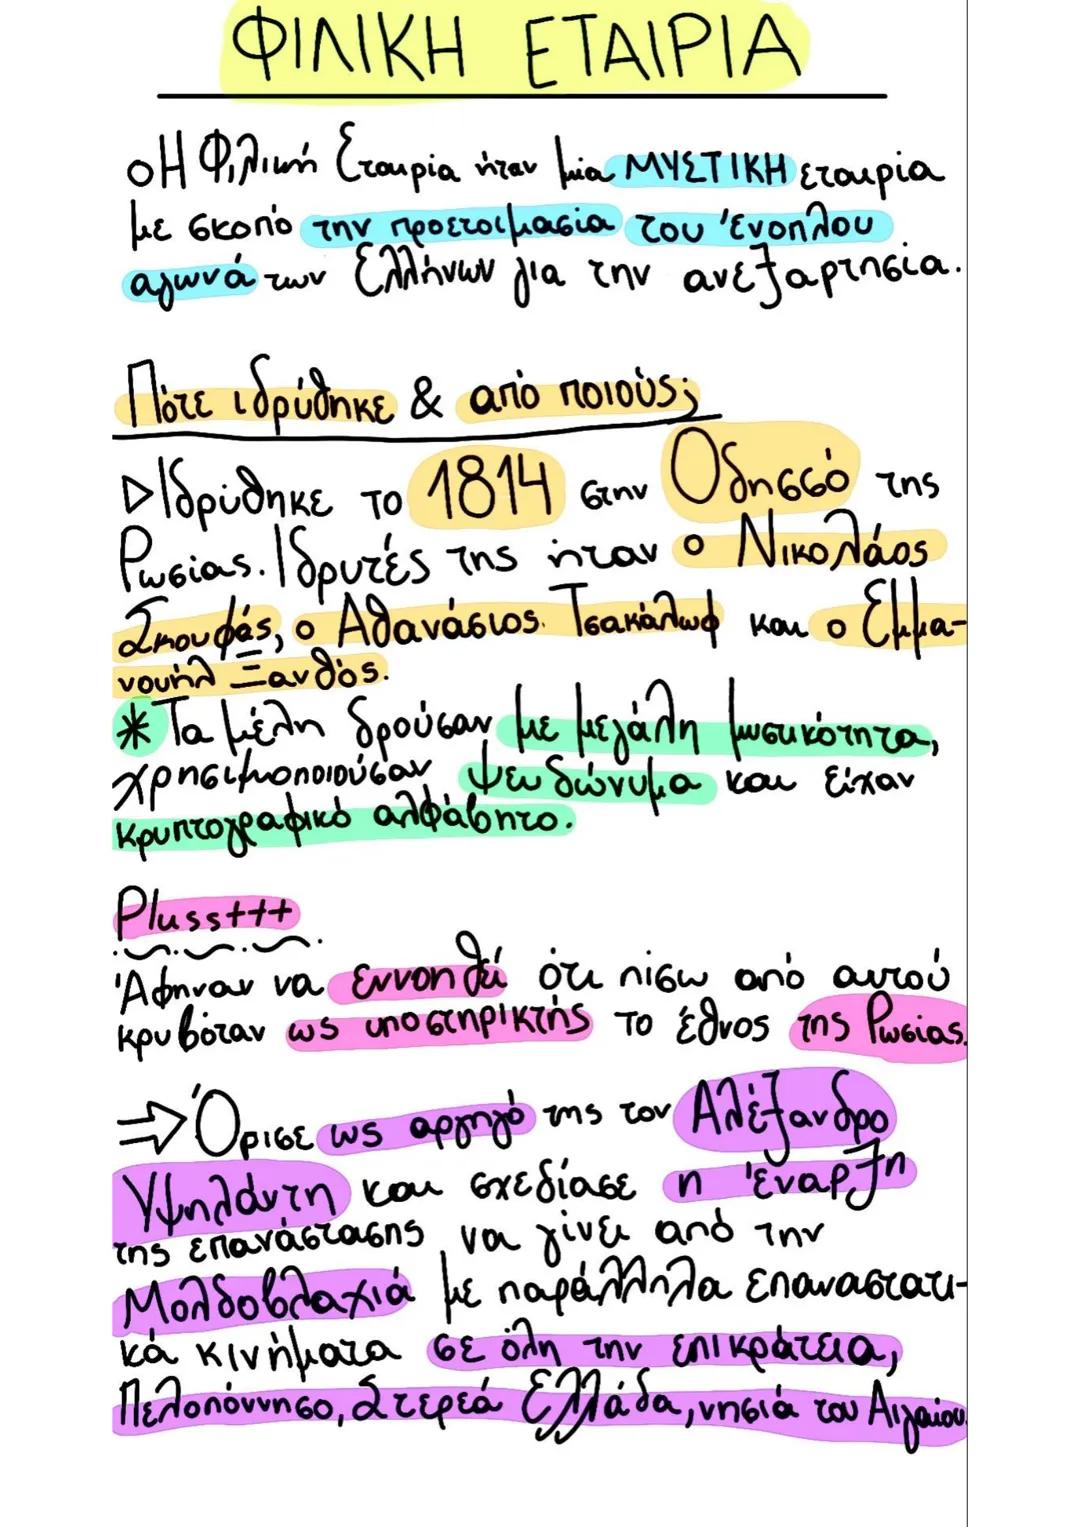 ΦΙΛΙΚΗ ΕΤΑΙΡΙΑ
Η Φιλική Εταιρία ήταν μία ΜΥΣΤΙΚΗ εταιρία
με σκοπό την προετοιμασία του ένοπλου
αγωνά των Ελλήνων για την ανεξαρτησία.
Πότε ιδρύθηκε & από ποιούς;
▷Ιδρύθηκε το 1814 στην Οδησσό της
Ρωσίας. Ιδρυτές της ήταν ο Νικολάος
Σκουφάς, ο Αθανάσιος Τσακάλωφ και ο Εμμα-
νουήλ Ξανθός.
* Τα μέλη δρούσαν με μεγάλη μυστικότητα,
χρησιμοποιούσαν ψευδώνυμα και είχαν
κρυπτογραφικό αλφάβητο.
Pluss+++
Άφηναν να εννοηθεί ότι πίσω από αυτού
κρυβόταν ως υποστηρικτής το έθνος της Ρωσίας.
⇒ Όρισε ως αρχηγό της τον Αλέξανδρο
Υψηλάντη και σχεδίασε η έναρξη
της επανάστασης να γίνει από την
Μολδοβλαχιά με παράλληλα επαναστατι-
κά κινήματα σε όλη την επικράτεια,
Πελοπόννησο, Στερεά Ελλάδα, νησιά του Αιγαίου.